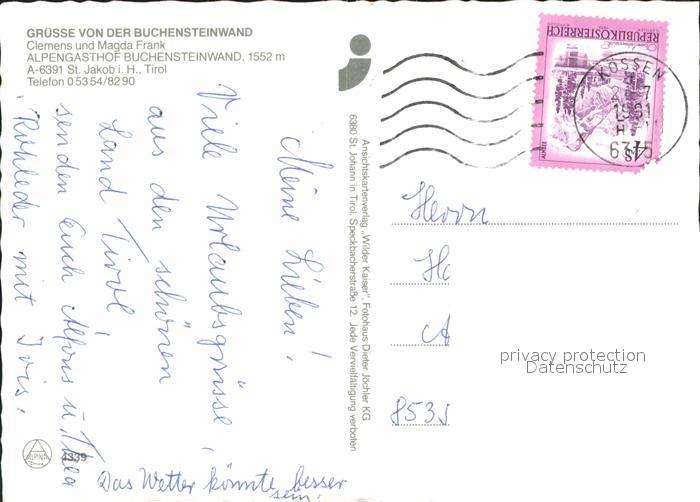 GRÜSSE VON DER BUCHENSTEINWAND
Clemens und Magda Frank
ALPENGASTHOF BUCHENSTEINWAND, 1552 m
A-6391 St. Jakob i. H., Tirol
Telefon 0 53 54/82 90
Meine Lieben!
Viele Urlaubsgrüsse,
aus den schönen
Land Tirol!
senden Euch Alfons u. Thea
Rohleder mit Iris.
Das Wetter könnte besser
sein!
Ansichtskartenverlag „Wilder Kaiser", Fotohaus Dieter Jöchler KG
6380 St. Johann in Tirol, Speckbacherstraße 12. Jede Vervielfältigung verboten
REPUBLIK ÖSTERREICH
S 4
KÖSSEN
1981
6345
Herrn
A
8535
privacy protection
Datenschutz
ALPINA
4339